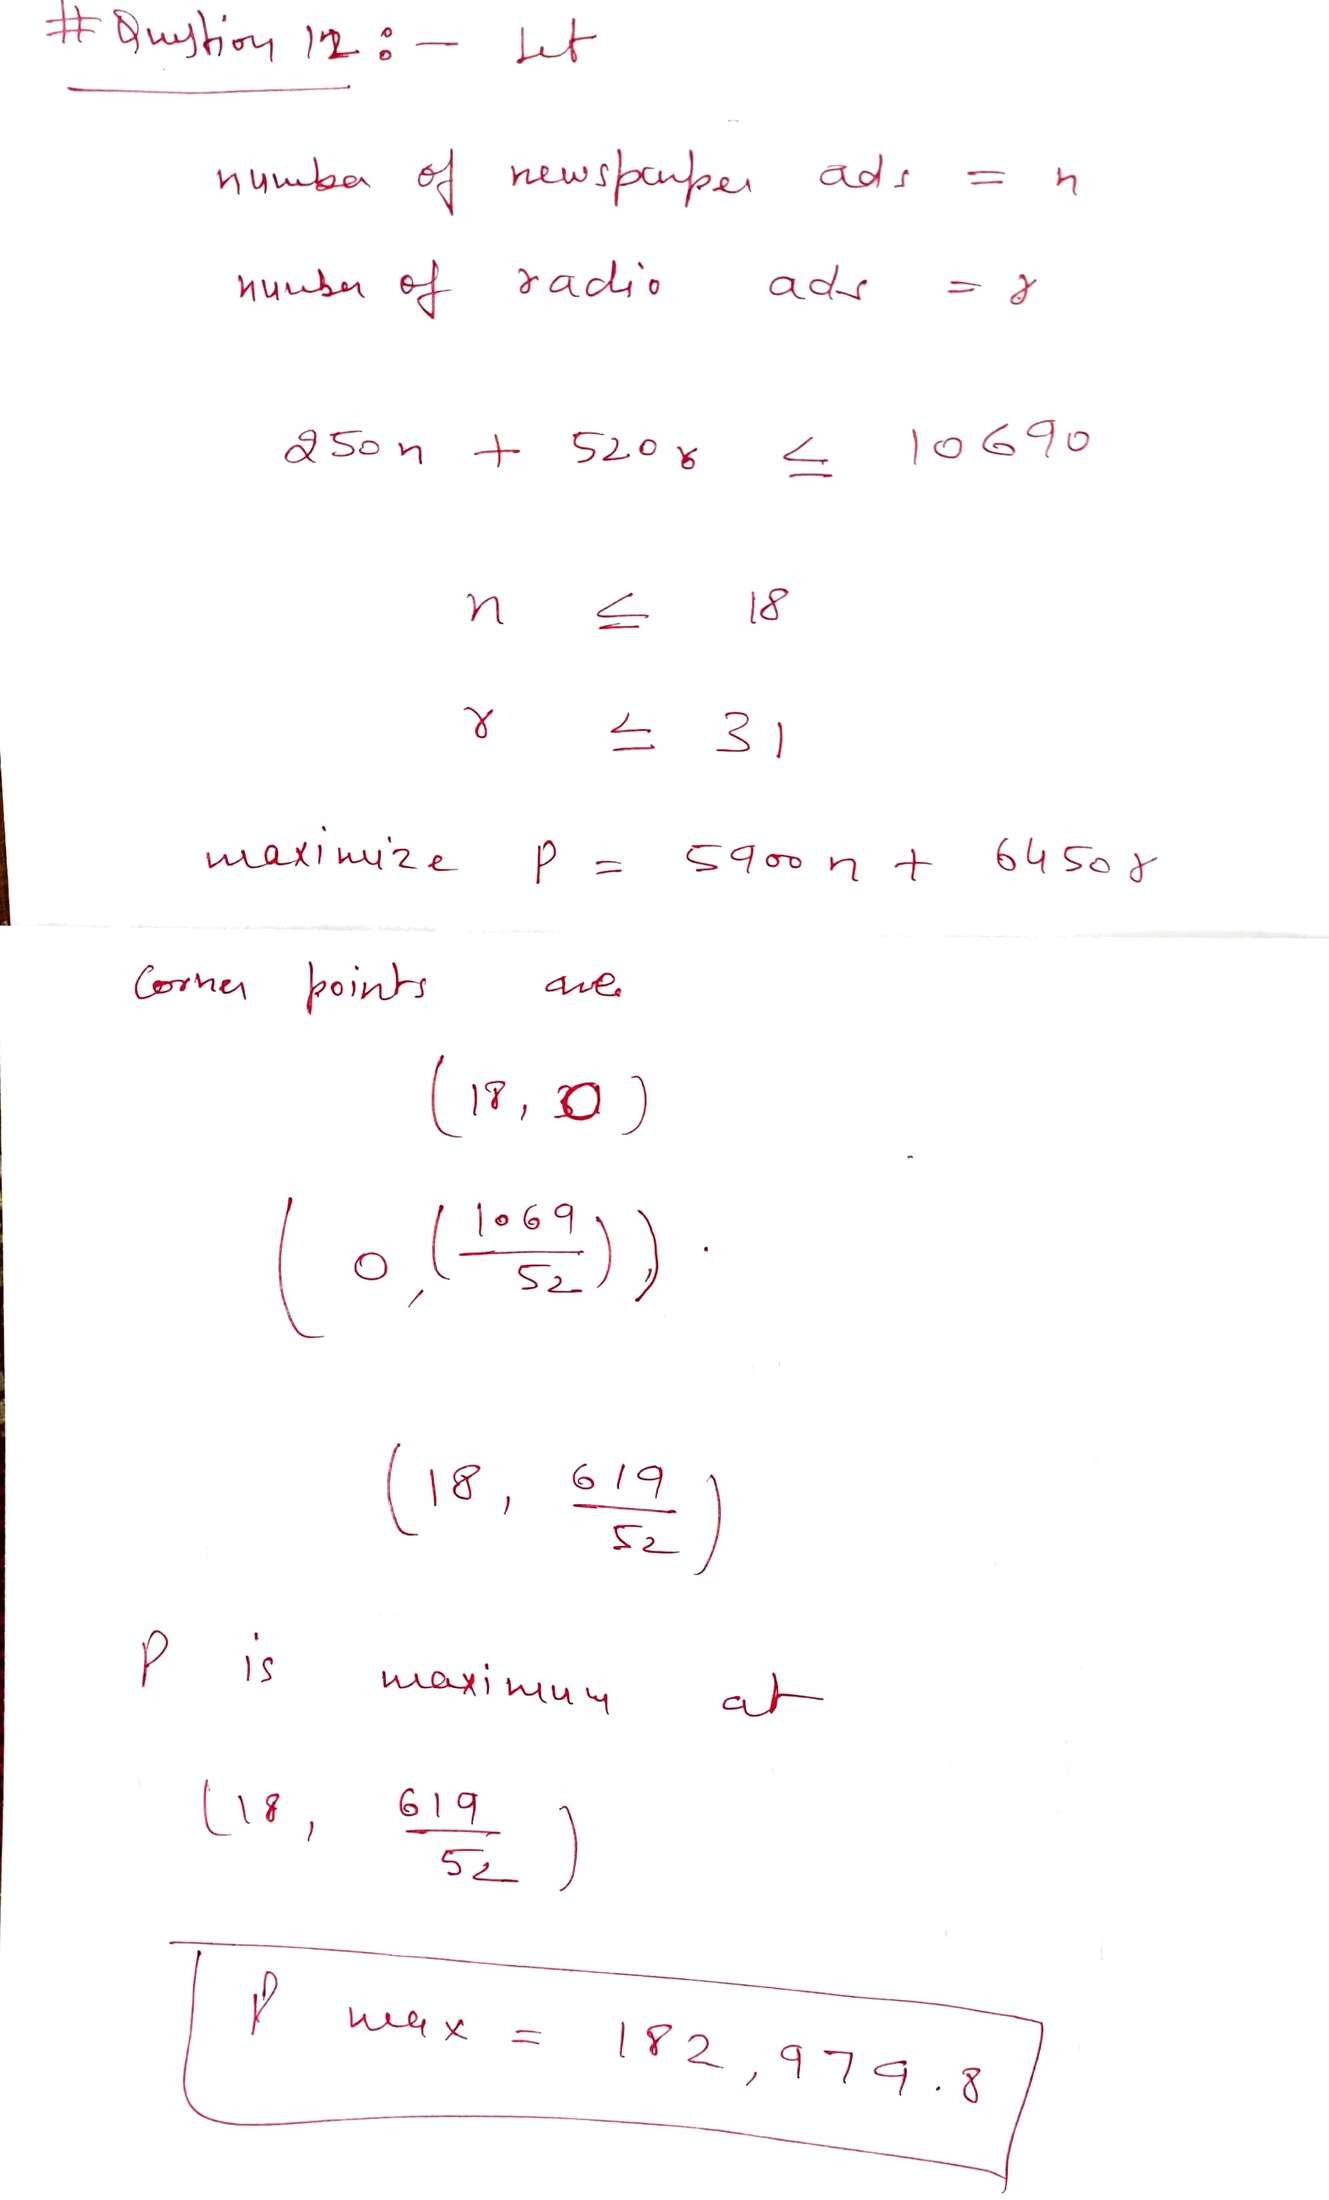 # Question 12 :- Let
number of newspaper ads = n
number of radio ads = r
250n + 520r ≤ 10690
n ≤ 18
r ≤ 31
maximize P = 5900n + 6450r
Corner points are
(18, 0)
(0, (1069/52)),
(18, 619/52)
P is maximum at
(18, 619/52)
P max = 182,979.8